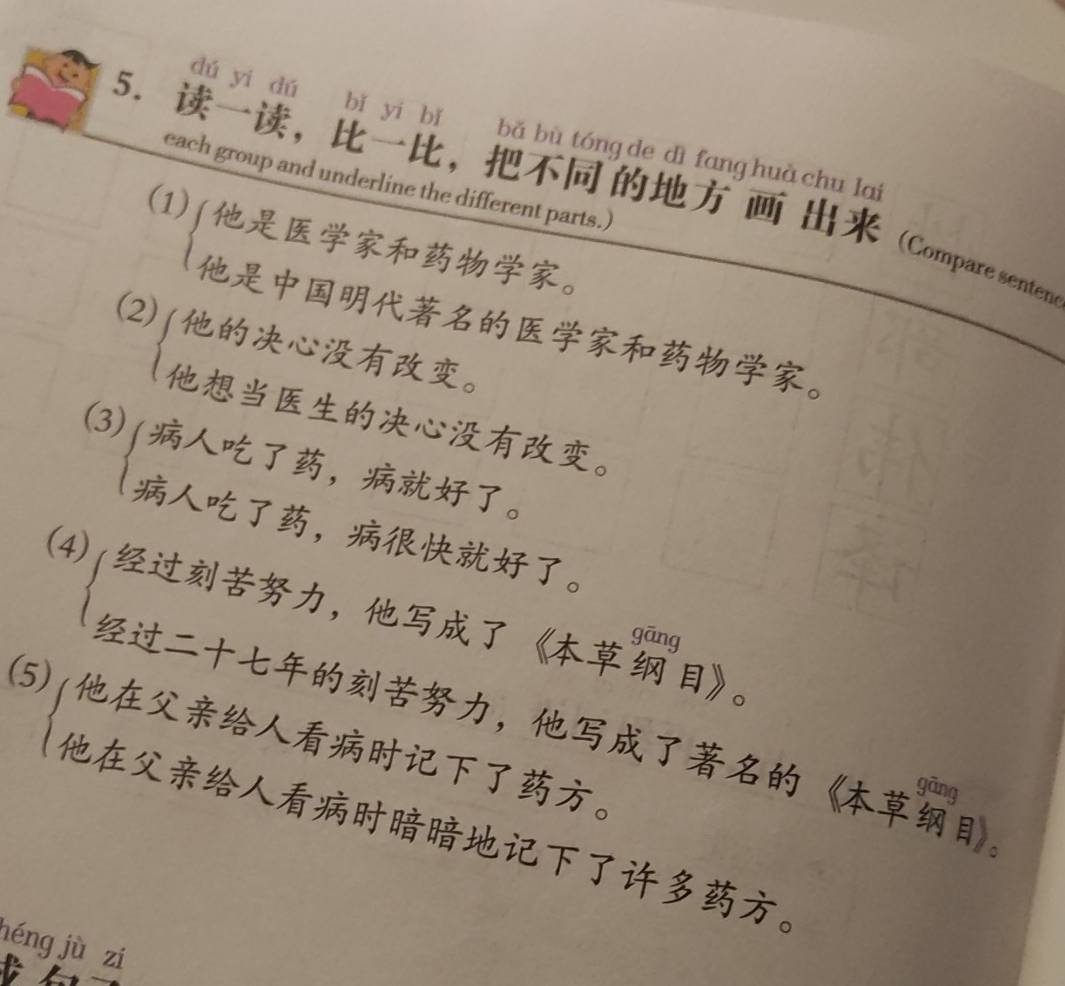 dú yi dú bǐ yi bǐ bǎ bù tóng de dì fang huà chu lai
5. 读一读，比一比，把不同的地方画出来 (Compare
each group and underline the different parts.)
(1) 他是医学家和药物学家。
他是中国明代著名的医学家和药物学家。
(2) 他的决心没有改变。
他想当医生的决心没有改变。
(3) 病人吃了药，病就好了。
病人吃了药，病很快就好了。
gāng
(4) 经过刻苦努力，他写成了《本草纲目》。
gāng
经过二十七年的刻苦努力，他写成了著名的《本草纲目》。
(5) 他在父亲给人看病时记下了药方。
他在父亲给人看病时暗暗地记下了许多药方。
jù zi